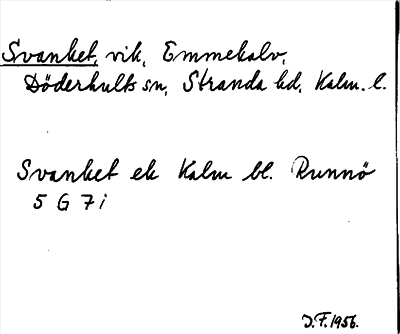 Svanket, vik, Emmekalv,
Döderhults sn, Stranda hd, Kalm. l.
Svanket ek Kalm bl. Runnö
5 G 7 i
J.F. 1956.